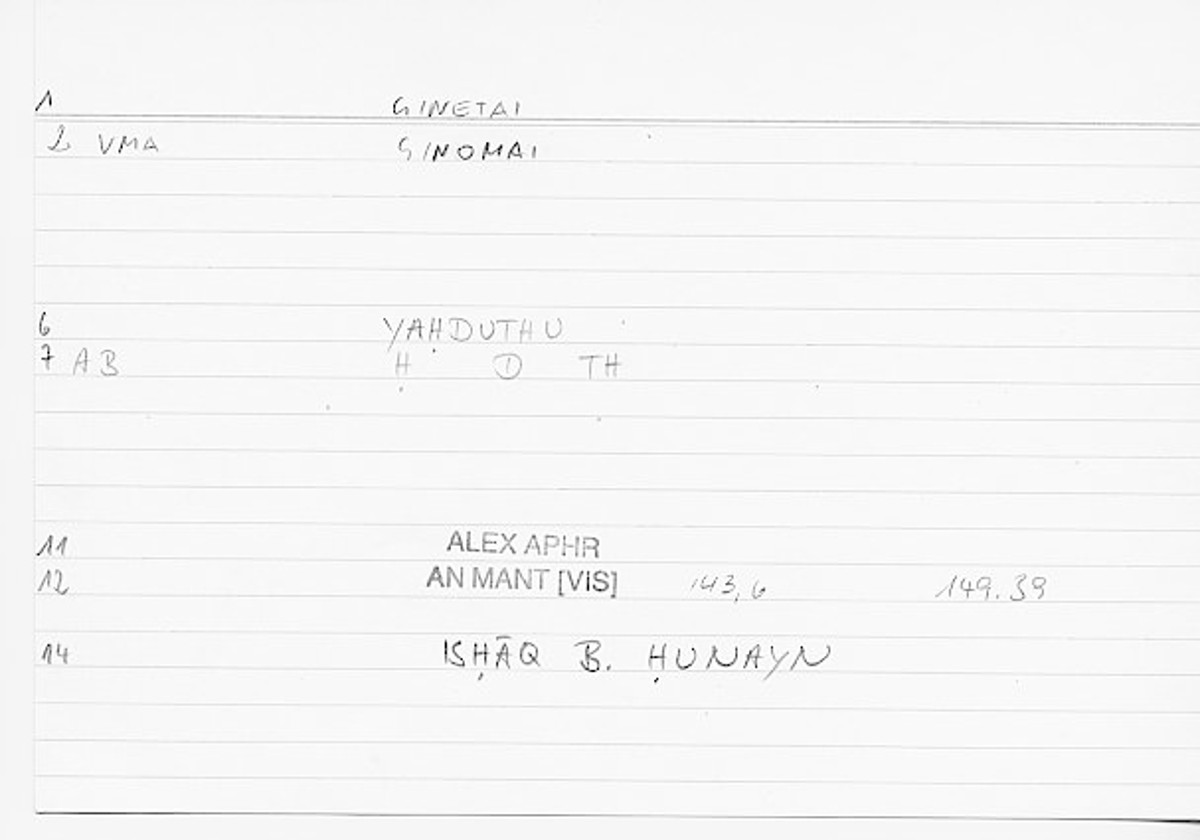 1 GINETAI
2 VMA GINOMAI
6 YAḤDUTHU
7 AB Ḥ D TH
11 ALEX APHR
12 AN MANT [VIS] 143,6 149.39
14 ISḤĀQ B. ḤUNAYN